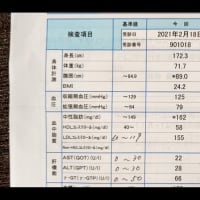 検査項目 基準値 今回
受診日 2021年2月18日
受診番号 901018
身体計測
身長(cm) 172.3
体重(kg) 71.7
腹囲(cm) ~84.9 *89.0
BMI 24.2
血圧
収縮期血圧(mmHg) ~129 125
拡張期血圧(mmHg) ~84 79
中性脂肪(mg/dl) ~149 *162
HDLコレステロール(mg/dl) 40~ 58
LDLコレステロール(mg/dl) 60~119 155
Non-HDLコレステロール(mg/dl)
肝機能
AST(GOT) (U/l) 0~30 22
ALT(GPT) (U/l) 0~30 28
γ-GT(γ-GTP) (U/l) 0~50 66